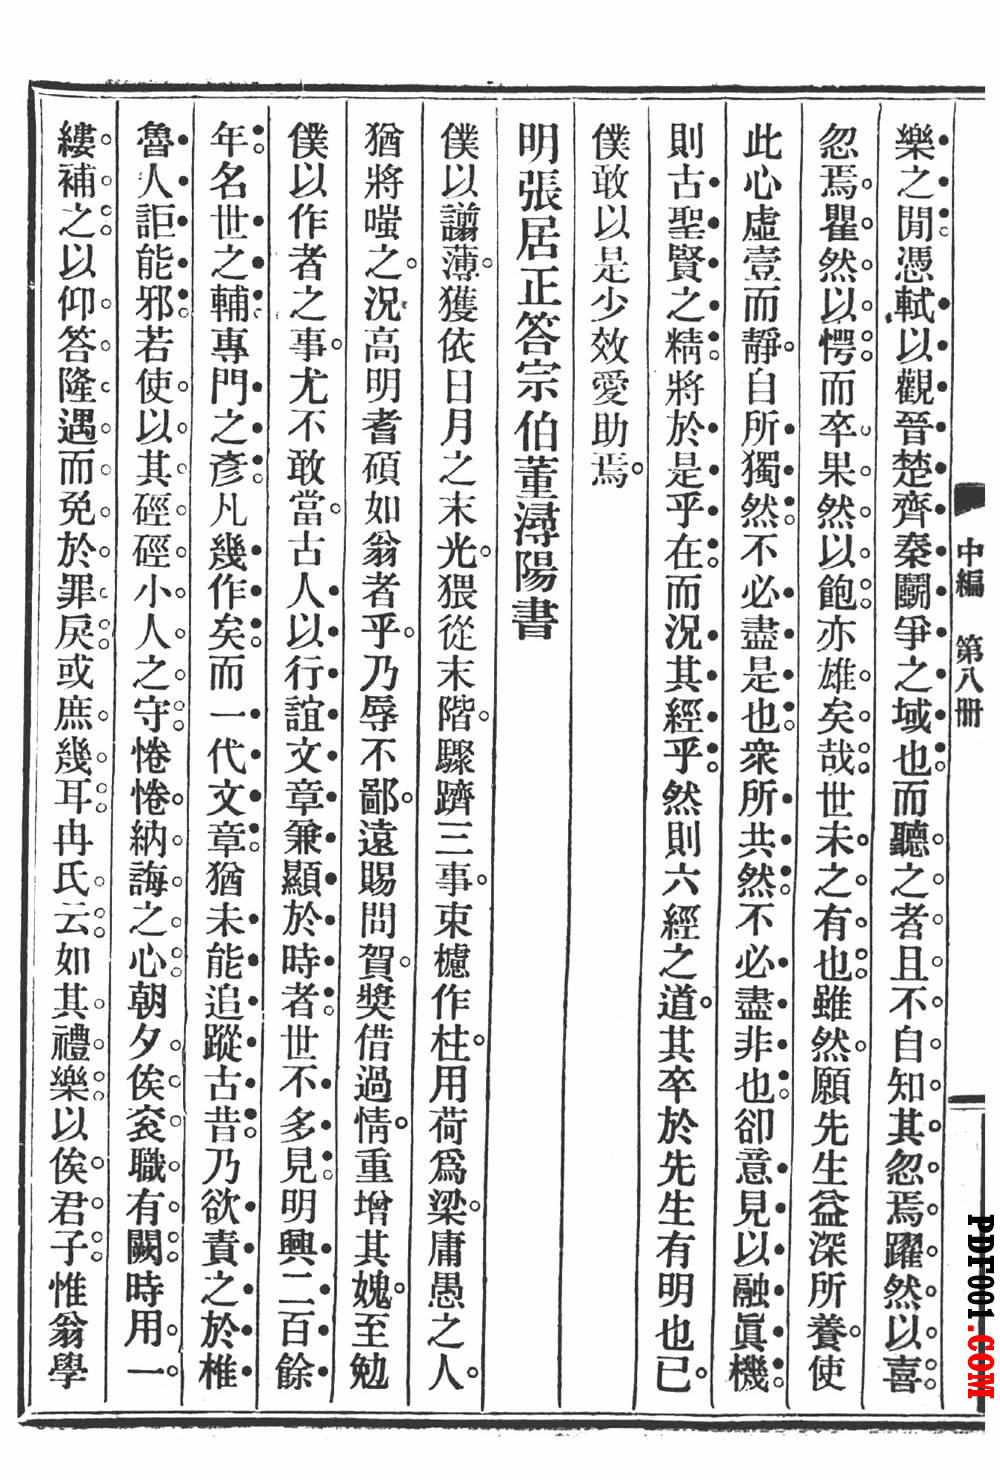 中編 第八冊
樂之閒憑軾以觀晉楚齊秦鬭爭之域也而聽之者且不自知其忽焉躍然以喜
忽焉瞿然以愕而卒果然以飽亦雄矣哉世未之有也雖然願先生益深所養使
此心虛壹而靜自所獨然不必盡是也衆所共然不必盡非也卻意見以融眞機
則古聖賢之精將於是乎在而況其經乎然則六經之道其卒於先生有明也已
僕敢以是少效愛助焉
明張居正答宗伯董潯陽書
僕以譾薄獲依日月之末光猥從末階驟躋三事束櫨作柱用荷爲梁庸愚之人
猶將嗤之況高明耆碩如翁者乎乃辱不鄙遠賜問賀獎借過情重增其媿至勉
僕以作者之事尤不敢當古人以行誼文章兼顯於時者世不多見明興二百餘
年名世之輔專門之彥凡幾作矣而一代文章猶未能追蹤古昔乃欲責之於椎
魯人詎能邪若使以其硜硜小人之守惓惓納誨之心朝夕俟衮職有闕時用一
縷補之以仰答隆遇而免於罪戾或庶幾耳冉氏云如其禮樂以俟君子惟翁學
PDF001.COM